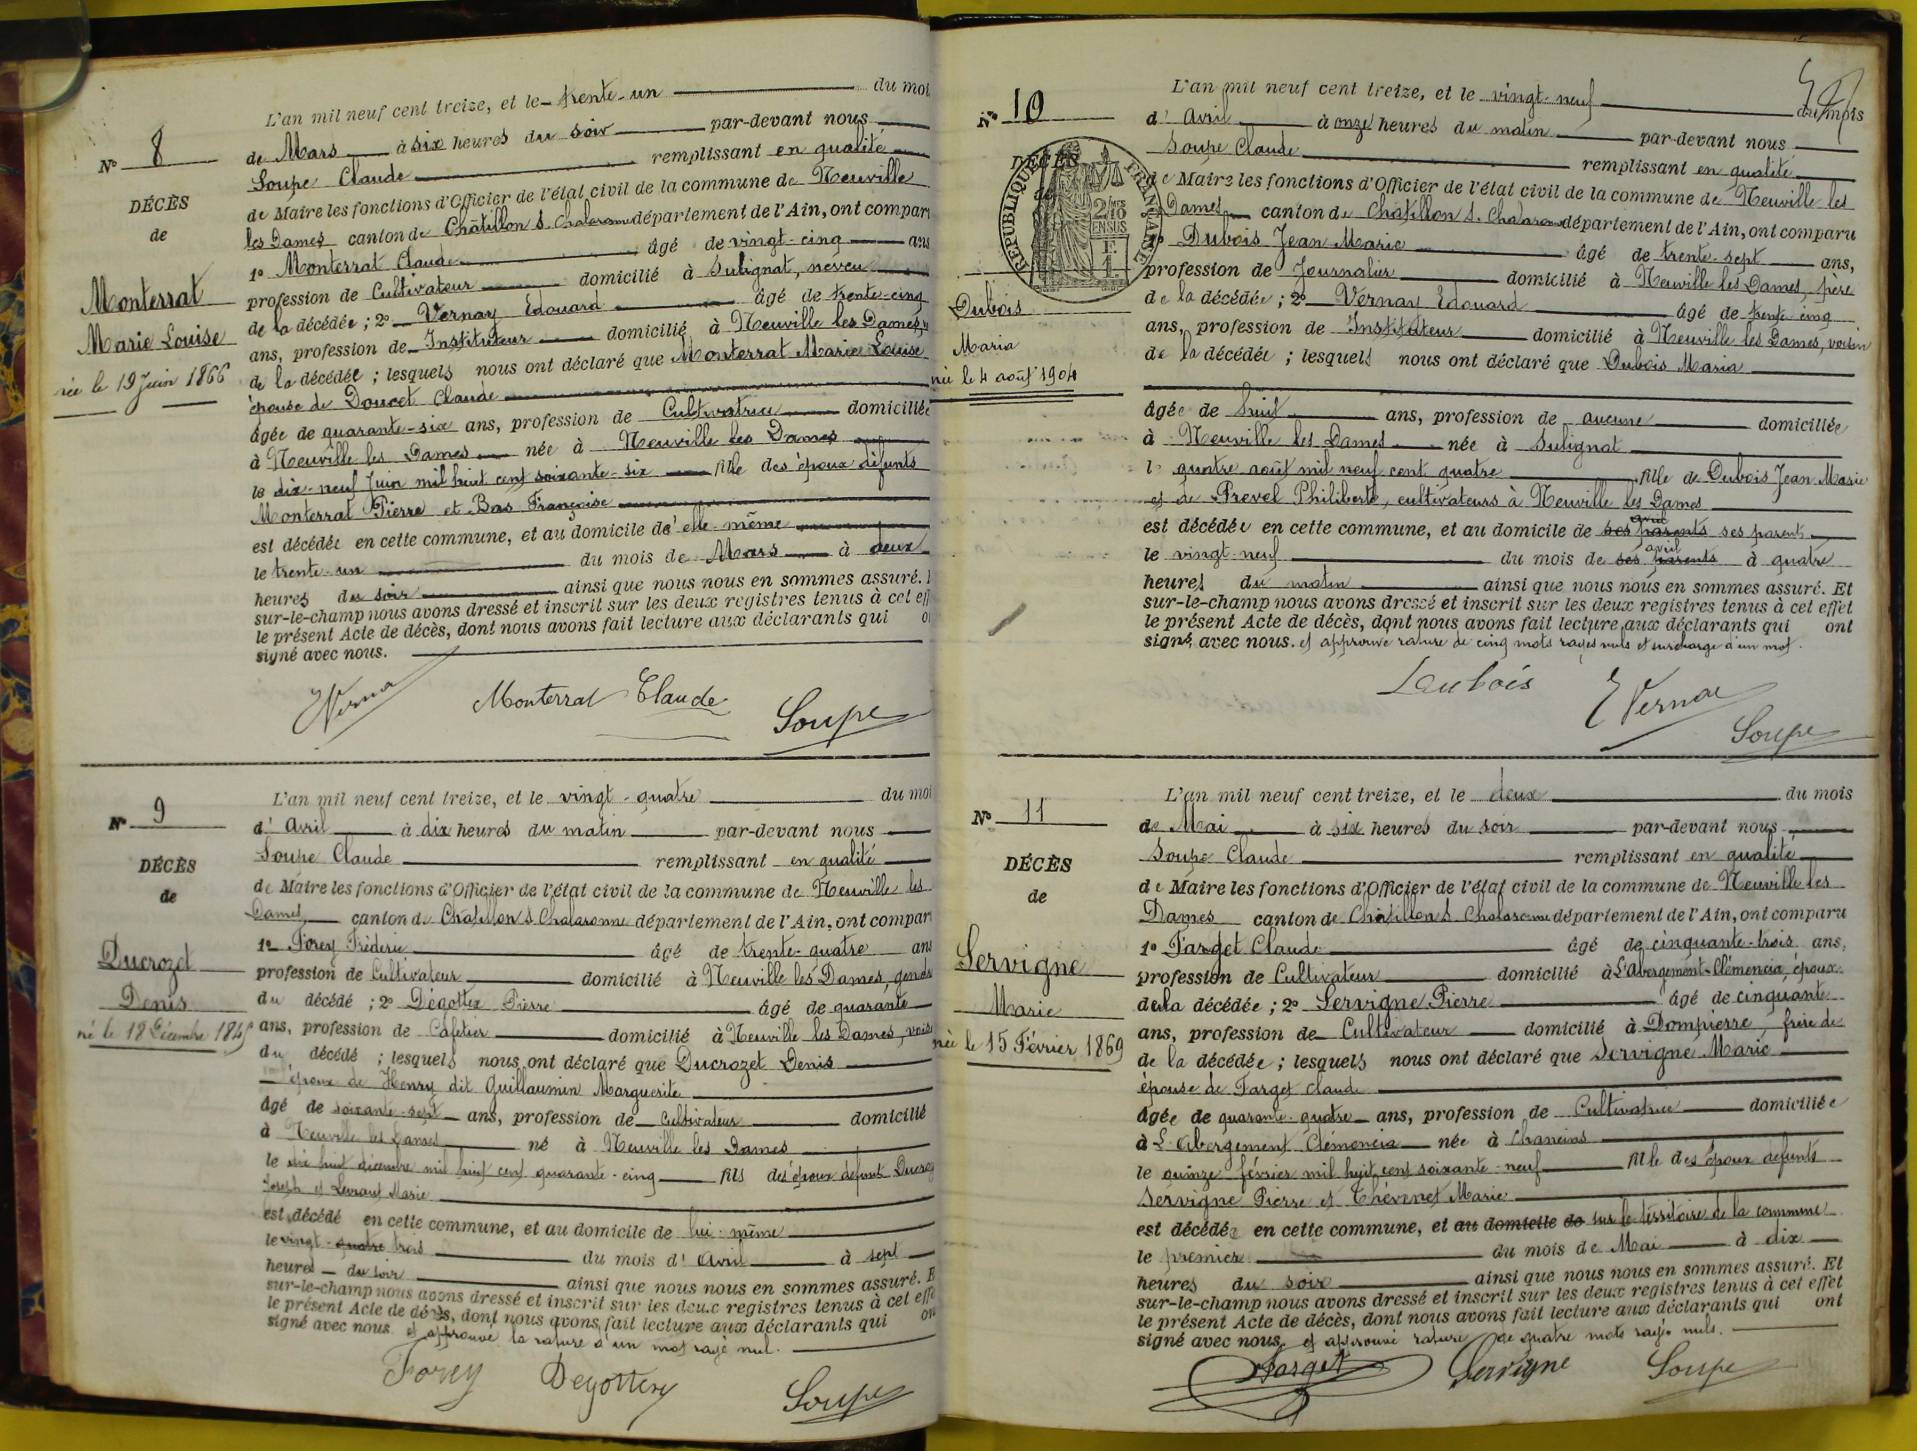 N° 8
DÉCÈS
de
Monterrat
Marie Louise
née le 19 Juin 1866
L'an mil neuf cent treize, et le trente-un du moi
de Mars à six heures du soir par-devant nous
Soupe Claude remplissant en qualité
de Maire les fonctions d'Officier de l'état civil de la commune de Neuville
les Dames canton de Châtillon s. Chalaronne département de l'Ain, ont compar
1° Monterrat Claude âgé de vingt-cinq ans
profession de Cultivateur domicilié à Sulignat, neveu
de la décédée ; 2° Vernay Edouard âgé de trente-cinq
ans, profession de Instituteur domicilié à Neuville les Dames,
de la décédée ; lesquels nous ont déclaré que Monterrat Marie Louise
épouse de Doucet Claude
âgée de quarante-six ans, profession de Cultivatrice domiciliée
à Neuville les Dames née à Neuville les Dames
le dix-neuf Juin mil huit cent soixante-six fille des époux défunts
Monterrat Pierre et Bas Françoise
est décédée en cette commune, et au domicile d'elle-même
le trente-un du mois de Mars à deux
heures du soir ainsi que nous nous en sommes assuré.
sur-le-champ nous avons dressé et inscrit sur les deux registres tenus à cet eff
le présent Acte de décès, dont nous avons fait lecture aux déclarants qui o
signé avec nous.
EVernay Monterrat Claude Soupe
N° 9
DÉCÈS
de
Ducrozet
Denis
né le 18 Décembre 1845
L'an mil neuf cent treize, et le vingt-quatre du moi
d'Avril à dix heures du matin par-devant nous
Soupe Claude remplissant en qualité
de Maire les fonctions d'Officier de l'état civil de la commune de Neuville les
Dames canton de Châtillon s Chalaronne département de l'Ain, ont compar
1° Forey Fréderic âgé de trente-quatre ans
profession de Cultivateur domicilié à Neuville les Dames, gendre
du décédé ; 2° Degottex Pierre âgé de quarante
ans, profession de Cafetier domicilié à Neuville les Dames, vois
du décédé ; lesquels nous ont déclaré que Ducrozet Denis
époux de Henry dit Guillaumin Marguerite
âgé de soixante-sept ans, profession de Cultivateur domicilié
à Neuville les Dames né à Neuville les Dames
le dix huit décembre mil huit cent quarante-cinq fils des époux défunts Ducroz
Joseph et Levrant Marie
est décédé en cette commune, et au domicile de lui-même
le vingt-quatre trois du mois d'Avril à sept
heures du soir ainsi que nous nous en sommes assuré. E
sur-le-champ nous avons dressé et inscrit sur les deux registres tenus à cet effe
le présent Acte de décès, dont nous avons fait lecture aux déclarants qui on
signé avec nous. et approuvé la rature d'un mot rayé nul.
Forey Degottex Soupe
N° 10
DÉCÈS
de
RÉPUBLIQUE FRANÇAISE
2/10 EN SUS
Dubois
Maria
née le 4 août 1904
L'an mil neuf cent treize, et le vingt-neuf du mois
d'Avril à onze heures du matin par-devant nous
Soupe Claude remplissant en qualité
de Maire les fonctions d'Officier de l'état civil de la commune de Neuville les
Dames canton de Châtillon s. Chalaronne département de l'Ain, ont comparu
1° Dubois Jean Marie âgé de trente-sept ans,
profession de Journalier domicilié à Neuville les Dames, père
de la décédée ; 2° Vernay Edouard âgé de trente cinq
ans, profession de Instituteur domicilié à Neuville les Dames, voisin
de la décédée ; lesquels nous ont déclaré que Dubois Maria
âgée de huit ans, profession de aucune domiciliée
à Neuville les Dames née à Sulignat
le quatre août mil neuf cent quatre fille de Dubois Jean Marie
et de Prevel Philiberte, cultivateurs à Neuville les Dames
est décédée en cette commune, et au domicile de ses parents ses parents
le vingt-neuf du mois de ses parents avril à quatre
heures du matin ainsi que nous nous en sommes assuré. Et
sur-le-champ nous avons dressé et inscrit sur les deux registres tenus à cet effet
le présent Acte de décès, dont nous avons fait lecture aux déclarants qui ont
signé avec nous. et approuvé rature de cinq mots rayés nuls et surcharge d'un mot.
Dubois EVernay
Soupe
N° 11
DÉCÈS
de
Servigne
Marie
née le 15 Février 1869
L'an mil neuf cent treize, et le deux du mois
de Mai à six heures du soir par-devant nous
Soupe Claude remplissant en qualité
de Maire les fonctions d'Officier de l'état civil de la commune de Neuville les
Dames canton de Châtillon s Chalaronne département de l'Ain, ont comparu
1° Farget Claude âgé de cinquante-trois ans,
profession de Cultivateur domicilié à L'Abergement-Clémencia, époux
de la décédée ; 2° Servigne Pierre âgé de cinquante
ans, profession de Cultivateur domicilié à Dompierre, frère de
de la décédée ; lesquels nous ont déclaré que Servigne Marie
épouse de Farget Claude
âgée de quarante-quatre ans, profession de Cultivatrice domiciliée
à L'Abergement Clémencia née à Chaneins
le quinze février mil huit cent soixante-neuf fille des époux défunts
Servigne Pierre et Thévenet Marie
est décédée en cette commune, et au domicile de sur le territoire de la commune
le premier du mois de Mai à dix
heures du soir ainsi que nous nous en sommes assuré. Et
sur-le-champ nous avons dressé et inscrit sur les deux registres tenus à cet effet
le présent Acte de décès, dont nous avons fait lecture aux déclarants qui ont
signé avec nous. et approuvé rature de quatre mots rayés nuls.
Farget Servigne Soupe